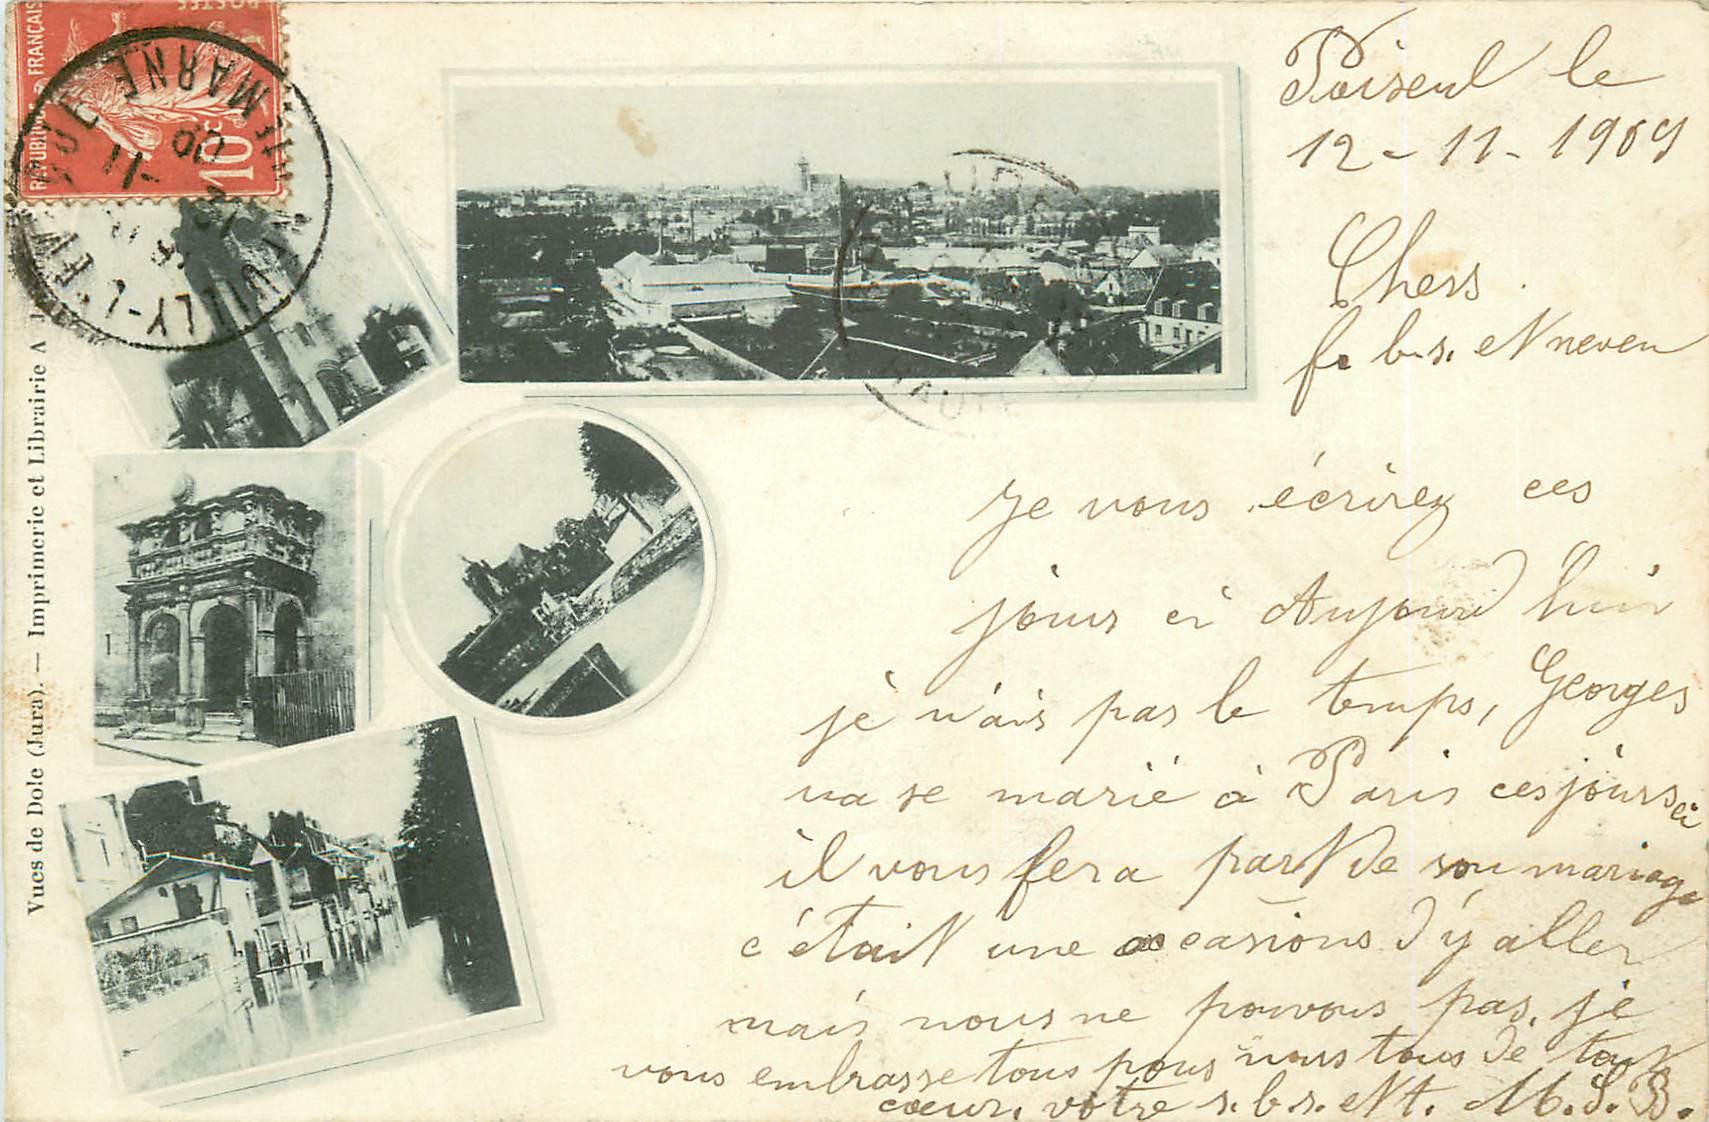 POSTES
RÉPUBLIQUE FRANÇAISE
10c
NEUILLY-L'EVEQUE
HTE MARNE
12
-11
09
Vues de Dole (Jura). — Imprimerie et Librairie A
Poiseul le
12-11-1909
Chers
f. b.s. et neveu
Je vous écrirez ces
jours ci Aujourd huir
je n'ais pas le temps, Georges
va se marié à Paris ces jours ci
il vous fera part de son mariage
c'était une occasions d'y aller
mais nous ne pouvons pas, je
vous embrasse tous pour nous tous de tout
cœur, votre s. b.s. et t. M. S. B.